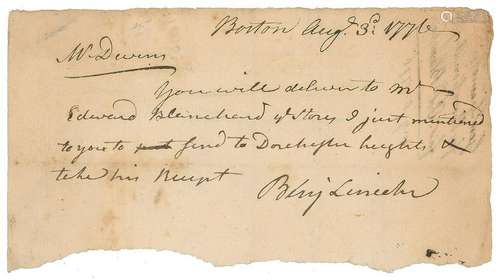 Boston Augt. 3d. 1776
Mr Devens
You will deliver to Mr
Edward Blanchard ye Stores I just mentioned
to you to send to Dorchester heights &
take his Receipt
Benj Lincoln